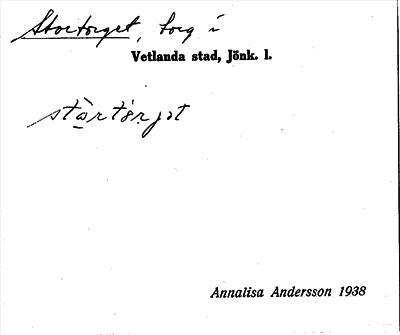 Stortorget, torg i
Vetlanda stad, Jönk. l.
stòrtörjət
Annalisa Andersson 1938